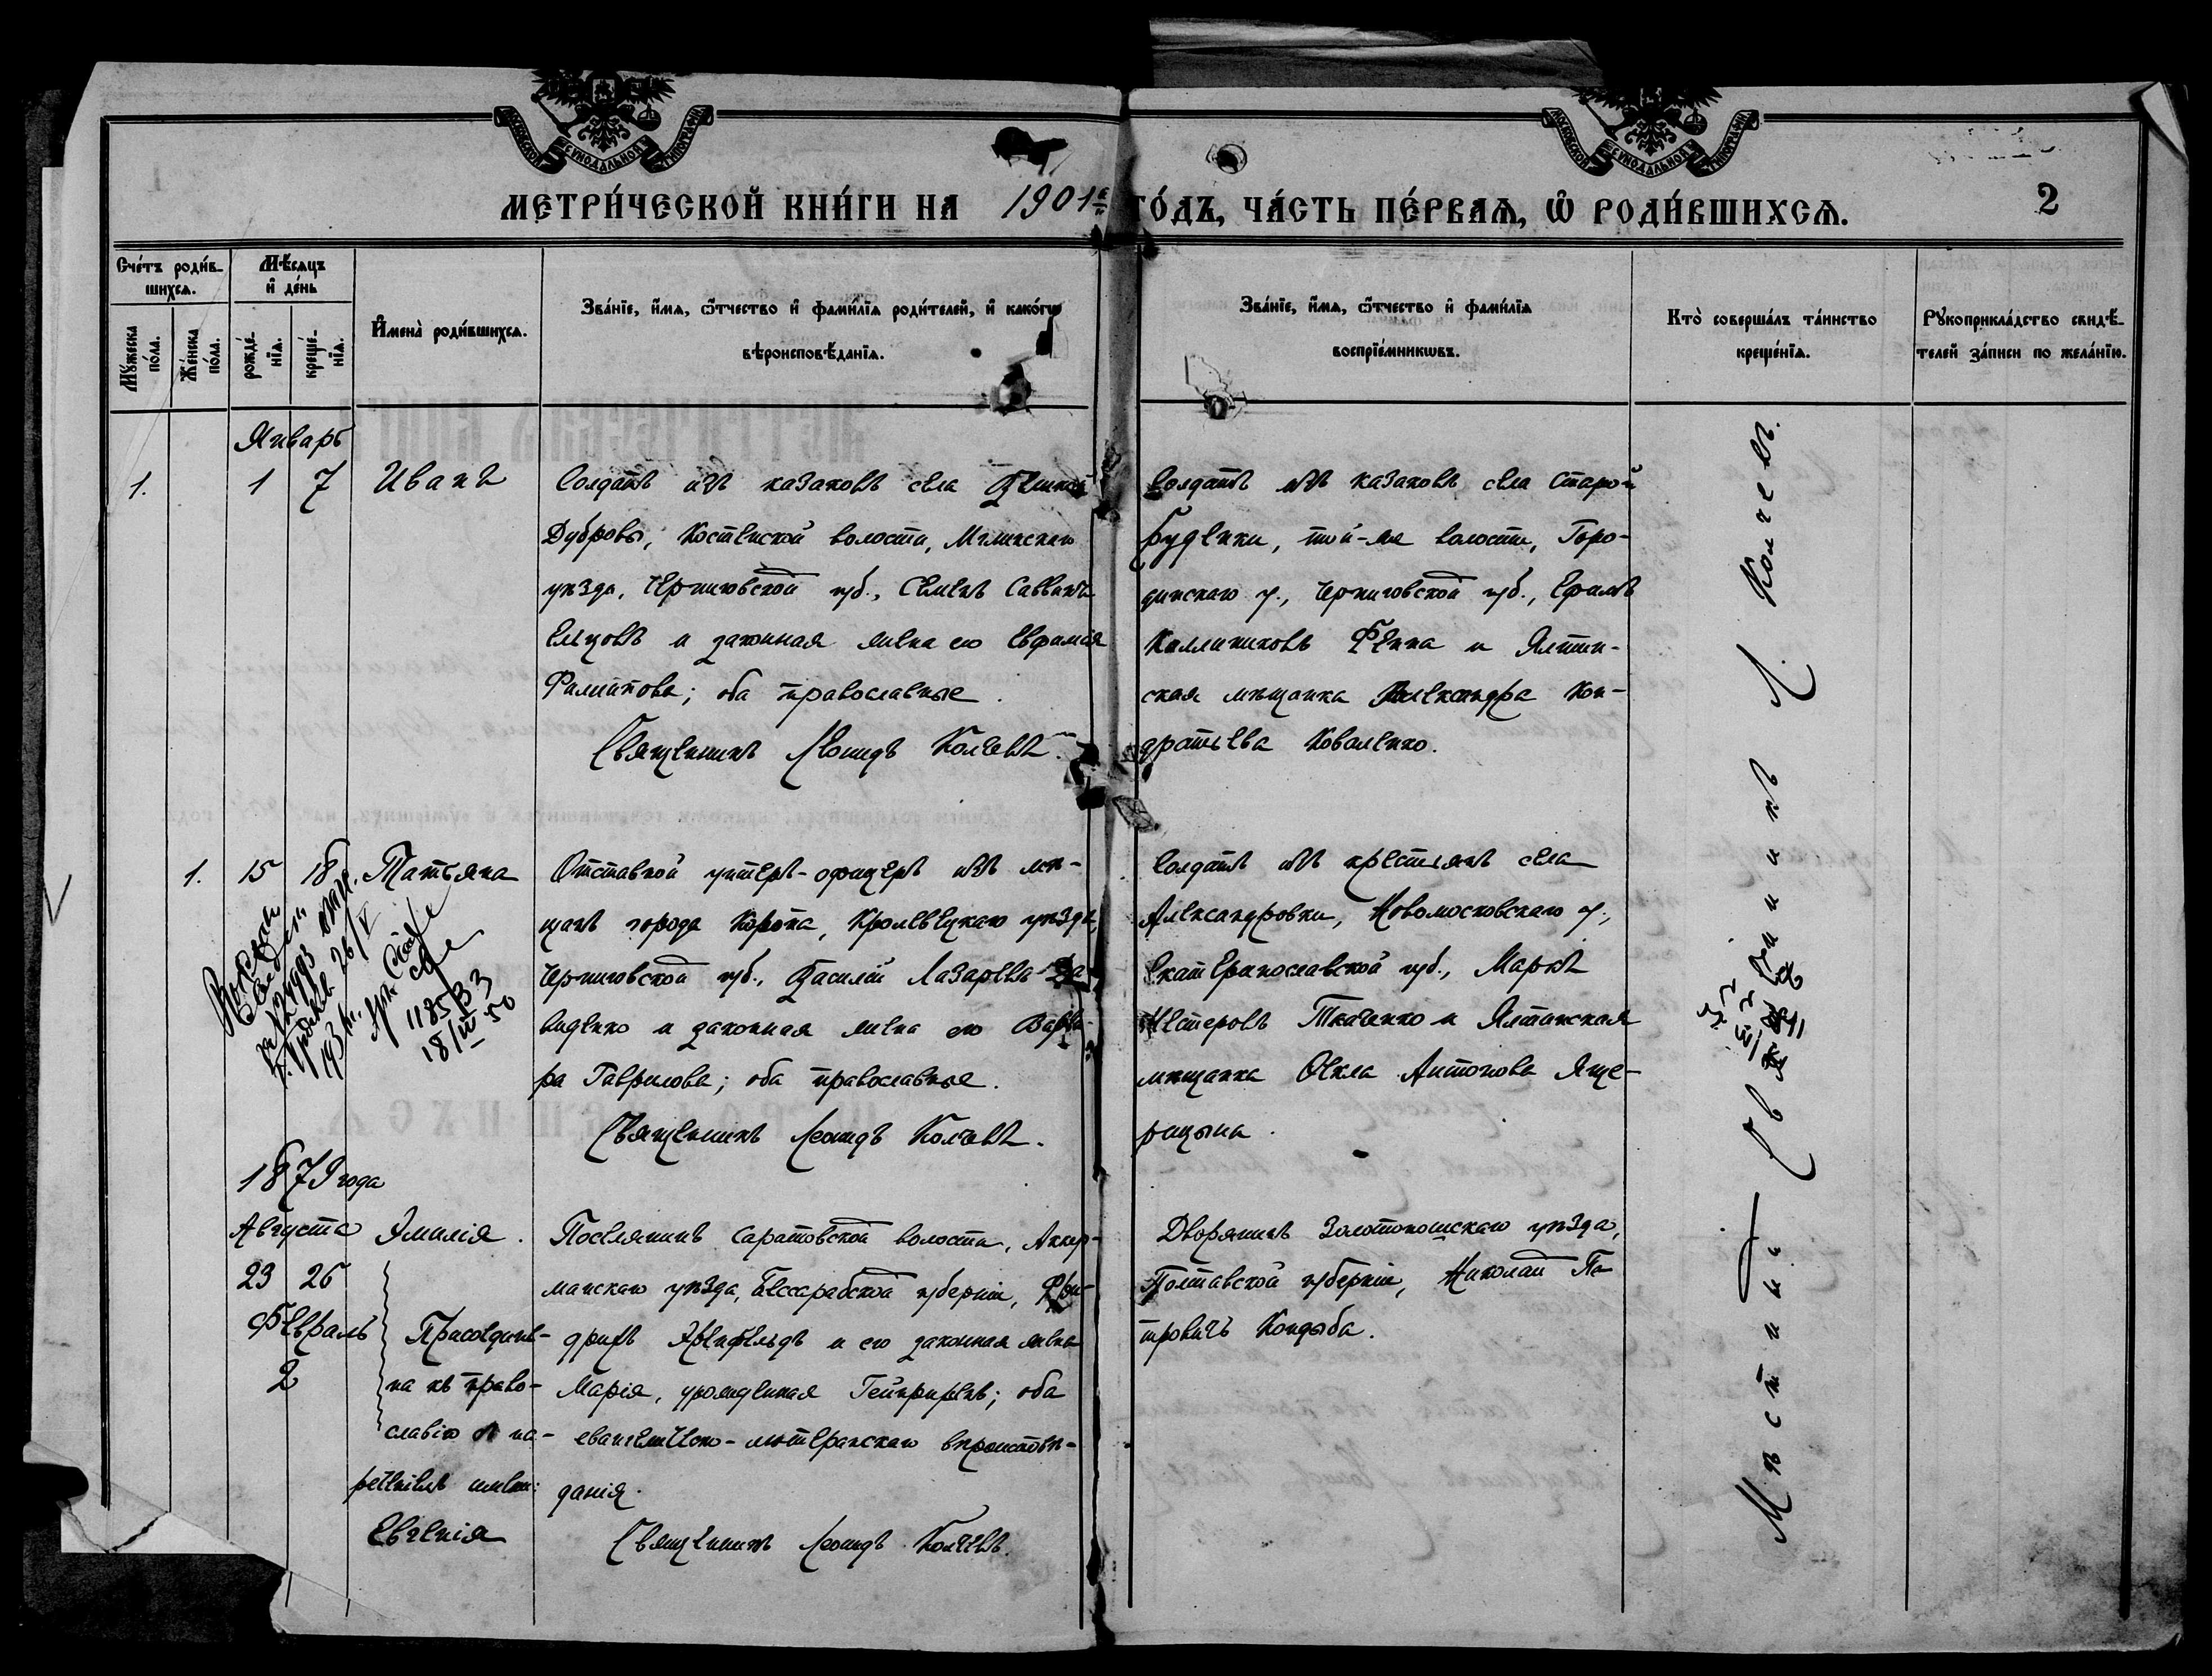 МОСКОВСКОЙ СѴНОДАЛЬНОЙ ТИПОГРАФІИ
МОСКОВСКОЙ СѴНОДАЛЬНОЙ ТИПОГРАФІИ
МЕТРИ́ЧЕСКОЙ КНИ́ГИ НА 1901й ГО́ДЪ, ЧА́СТЬ ПЕ́РВАѦ, Ѡ҆ РОДИ́ВШИХСѦ.
2
Сче́тъ роди́в-
шихсѧ.
Мꙋ́жеска
по́ла.
Же́нска
по́ла.
Мѣ́сѧцъ
и҆ де́нь
рожде́-
нїѧ.
креще́-
нїѧ.
И҆мена̀ роди́вшихсѧ.
Зва́нїе, и҆́мѧ, ѻ҆́тчество и҆ фами́лїѧ роди́телей, и҆ како́гѡ
вѣроисповѣ́данїѧ.
Зва́нїе, и҆́мѧ, ѻ҆́тчество и҆ фами́лїѧ
воспрїе́мникѡвъ.
Кто̀ соверша́лъ та́инство
креще́нїѧ.
Рꙋкоприкла́дство свидѣ́-
телей за́писи по жела́нїю.
Январь
1. 1 7 Иванъ
Солдатъ изъ казаковъ села
Дубровы, Костенской волости, Мглинскаго
уѣзда, Черниговской губ., Семенъ Саввинъ
Ельцовъ и законная жена его Евфимія
Филиппова; оба православные.
Священникъ Леонидъ Колчевъ.
Солдатъ изъ казаковъ села Старой
Буденки, той-же волости, Горо-
дницскаго у., Черниговской губ., Ефимъ
Каллиниковъ и Ялтин-
ская мѣщанка Александра Кон-
дратьева Коваленко.
1. 15 18 Татьяна
Отставной унтеръ-офицеръ изъ мѣ-
щанъ города Коропа, Кролевецкаго уѣзда,
Черниговской губ., Василій Лазаревъ Да-
виденко и законная жена его Варва-
ра Гаврилова; оба православные.
Священникъ Леонидъ Колчевъ.
Солдатъ изъ крестьянъ села
Александровки, Новомосковскаго у.,
Екатеринославской губ., Маркъ
Нестеровъ Ткаченко и Ялтинская
мѣщанка Ѳекла Антонова Яще-
рицына.
118533
18/III 50
1879 года
Августа
23 26
Эмилія.
Февраль
2
Присоедине-
на къ право-
славію и на-
реченіемъ имени:
Евгенія
Поселянинъ Саратовской волости, Аккер-
манскаго уѣзда, Бессарабской губерніи, Фри-
дрихъ и его законная жена
Марія, урожденная; оба
евангелическо-лютеранскаго вѣроисповѣ-
данія.
Священникъ Леонидъ Колчевъ.
Дворянинъ Золотоношскаго уѣзда,
Полтавской губерніи, Николай Пе-
тровичъ Кондыба.
Мѣстный Священникъ Л. Колчевъ.